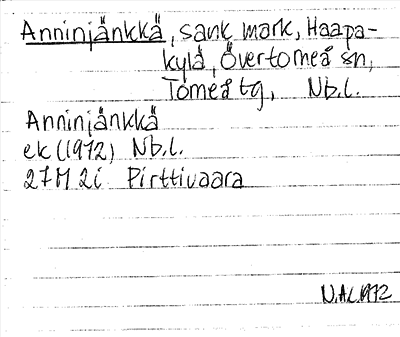 Anninjänkkä, sank mark, Haapa-
kylä, Övertorneå sn,
Torneå tg, Nb.l.
Anninjänkkä
ek (1972) Nb.l.
27M 2i Pirttivaara
N.Ä.1972